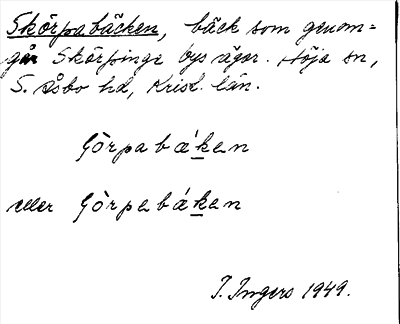 Skörpabäcken, bäck som genom=
går Skörpinge bys ägor. Höja sn,
S. Åsbo hd, Krist. län.
Görpabáken
eller Görpebáken
I. Ingers 1949.